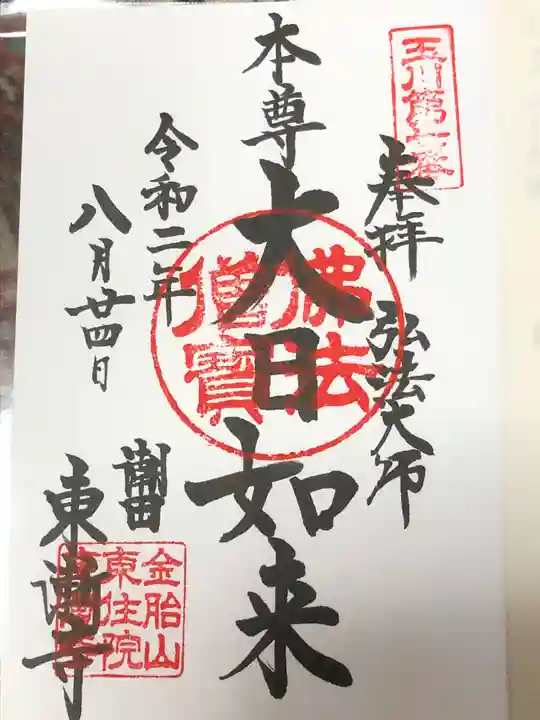 奉拝
弘法大師
本尊
大日如来
佛法
僧寳
令和二年
八月廿四日
潮田
東漸寺
金胎山
東住院